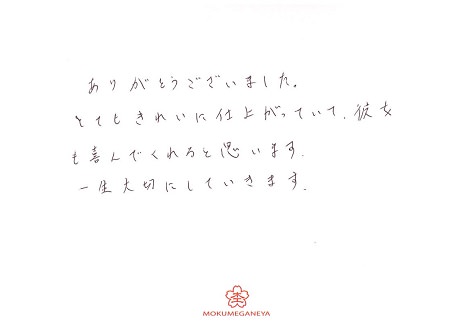 ありがとうございました。
とてもきれいに仕上がっていて、彼女
も喜んでくれると思います。
一生大切にしていきます。
MOKUMEGANEYA